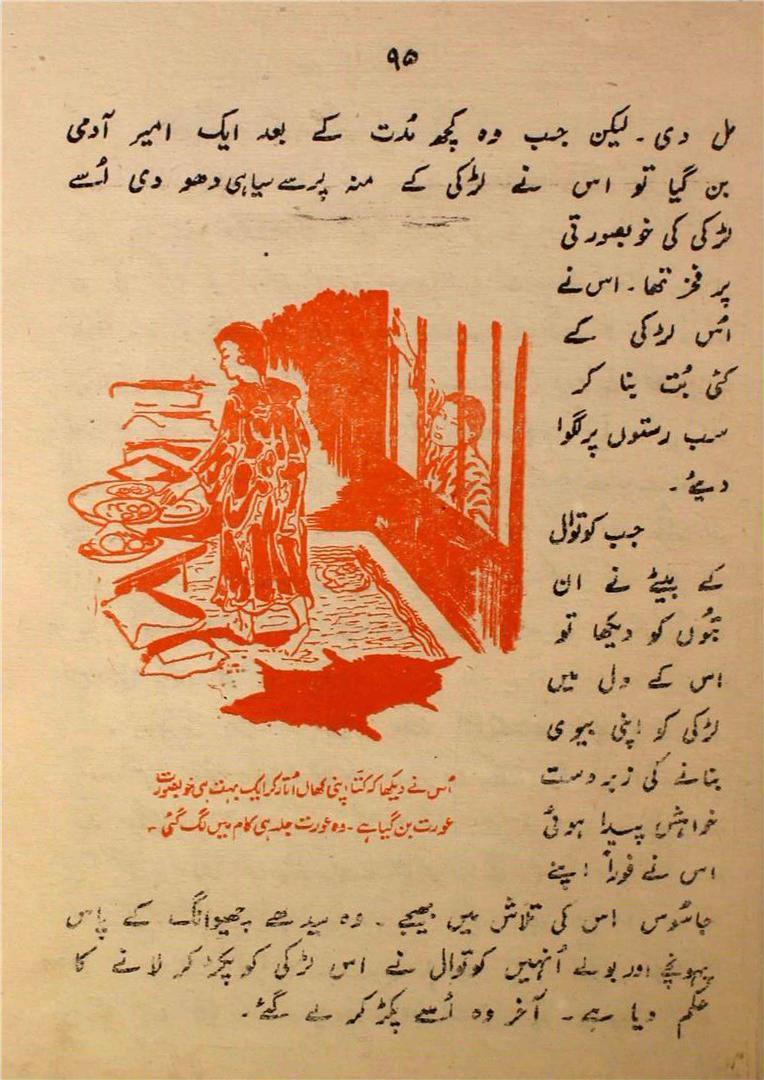 ۹۵
مل دی۔ لیکن جب وہ کچھ مُدت کے بعد ایک امیر آدمی
بن گیا تو اس نے لڑکی کے منہ پر سے سیاہی دھو دی اُسے
لڑکی کی خوبصورتی
پر فخر تھا۔ اس نے
اُس لڑکی کے
کئی بُت بنا کر
سب رستوں پر لگوا
دیئے۔
جب کوتوال
کے بیٹے نے ان
بُتوں کو دیکھا تو
اس کے دل میں
لڑکی کو اپنی بیوی
بنانے کی زبردست
خواہش پیدا ہوئی
اس نے فوراً اپنے
جاسُوس اس کی تلاش میں بھیجے۔ وہ سیدھے چھیوانگ کے پاس
پہونچے اور بولے اُنہیں کوتوال نے اس لڑکی کو پکڑ کر لانے کا
حکم دیا ہے۔ آخر وہ اُسے پکڑ کر لے گئے۔
اُس نے دیکھا کہ کتا اپنی کھال اُتار کر ایک بہت ہی خوبصورت
عورت بن گیا ہے۔ وہ عورت جلد ہی کام میں لگ گئی۔